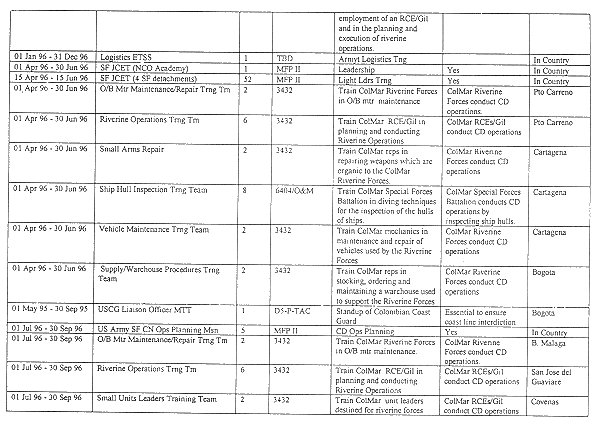 employment of an RCE/Gil
and in the planning and
execution of riverine
operations.
01 Jan 96 - 31 Dec 96 Logistics ETSS 1 TBD Armyt Logistics Tng In Country
01 Apr 96 - 30 Jun 96 SF JCET (NCO Academy) 1 MFP II Leadership Yes In Country
15 Apr 96 - 15 Jun 96 SF JCET (4 SF detachments) 52 MFP II Light Ldrs Trng Yes In Country
01 Apr 96 - 30 Jun 96 O/B Mtr Maintenance/Repair Trng Tm 2 3432 Train ColMar Riverine Forces ColMar Riverine Pto Carreno
in O/B mtr maintenance Forces conduct CD
operations.
01 Apr 96 - 30 Jun 96 Riverine Operations Trng Tm 6 3432 Train ColMar RCE/Gil in ColMar RCEs/Gil Pto Carreno
planning and conducting conduct CD operations
Riverine Operations
01 Apr 96 - 30 Jun 96 Small Arms Repair 2 3432 Train ColMar reps in ColMar Riverine Cartagena
repairing weapons which are Forces conduct CD
organic to the ColMar operations
Riverine Forces.
01 Apr 96 - 30 Jun 96 Ship Hull Inspection Trng Team 8 6404/O&M Train ColMar Special Forces ColMar Special Forces Cartagena
Battalion in diving techniques Battalion conducts CD
for the inspection of the hulls operations by
of ships. inspecting ship hulls.
01 Apr 96 - 30 Jun 96 Vehicle Maintenance Trng Team 2 3432 Train ColMar mechanics in ColMar Riverine Cartagena
maintenance and repair of Forces conduct CD
vehicles used by the Riverine operations
Forces
01 Apr 96 - 30 Jun 96 Supply/Warehouse Procedures Trng 2 3432 Train ColMar reps in ColMar Riverine Bogota
Team stocking, ordering and Forces conduct CD
maintaining a warehouse used operations
to support the Riverine Forces
01 May 95 - 30 Sep 95 USCG Liaison Officer MTT 1 D5-P-TAC Standup of Colombian Coast Essential to ensure Bogota
Guard coast line interdiction
01 Jul 96 - 30 Sep 96 US Army SF CN Ops Planning Msn 5 MFP II CD Ops Planning Yes In Country
01 Jul 96 - 30 Sep 96 O/B Mtr Maintenance/Repair Trng Tm 2 3432 Train ColMar Riverine Forces ColMar Riverine B. Malaga
in O/B mtr maintenance. Forces conduct CD
operations.
01 Jul 96 - 30 Sep 96 Riverine Operations Trng Tm 6 3432 Train ColMar RCE/Gil in ColMar RCEs/Gil San Jose del
planning and conducting conduct CD operations Guaviare
Riverine Operations
01 Jul 96 - 30 Sep 96 Small Units Leaders Training Team 2 3432 Train ColMar unit leaders ColMar RCEs/Gil Covenas
destined for riverine forces conduct CD operations